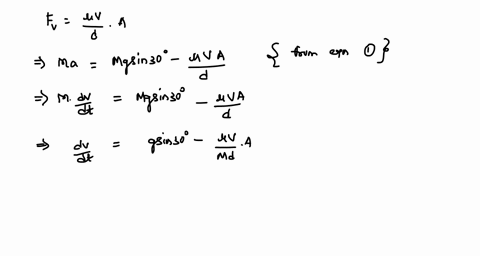 Fv = μV/d . A
⇒ Ma = Mgsin30° − μVA/d { from eqn ① }
⇒ M. dv/dt = Mgsin30° − μVA/d
⇒ dv/dt = gsin30° − μV/Md . A